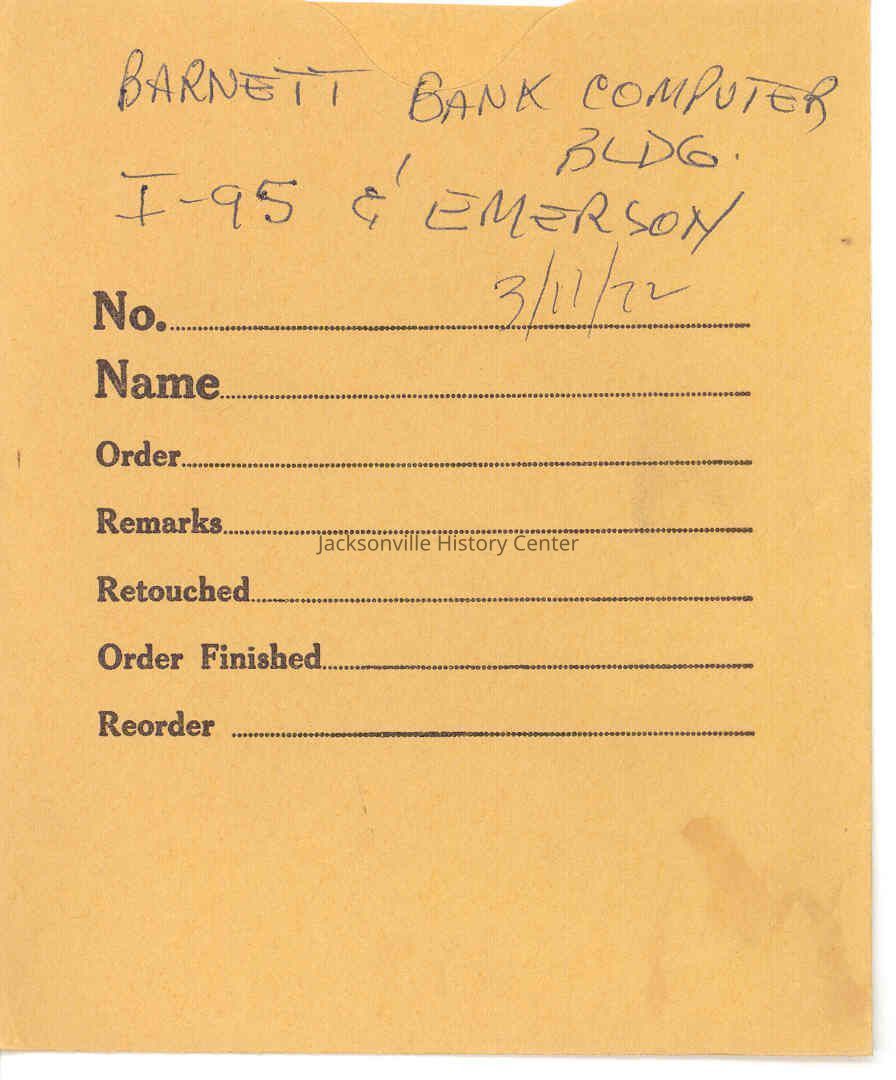 BARNETT BANK COMPUTER
BLDG.
I-95 & EMERSON
3/11/72
No.
Name
Order
Remarks
Jacksonville History Center
Retouched
Order Finished
Reorder